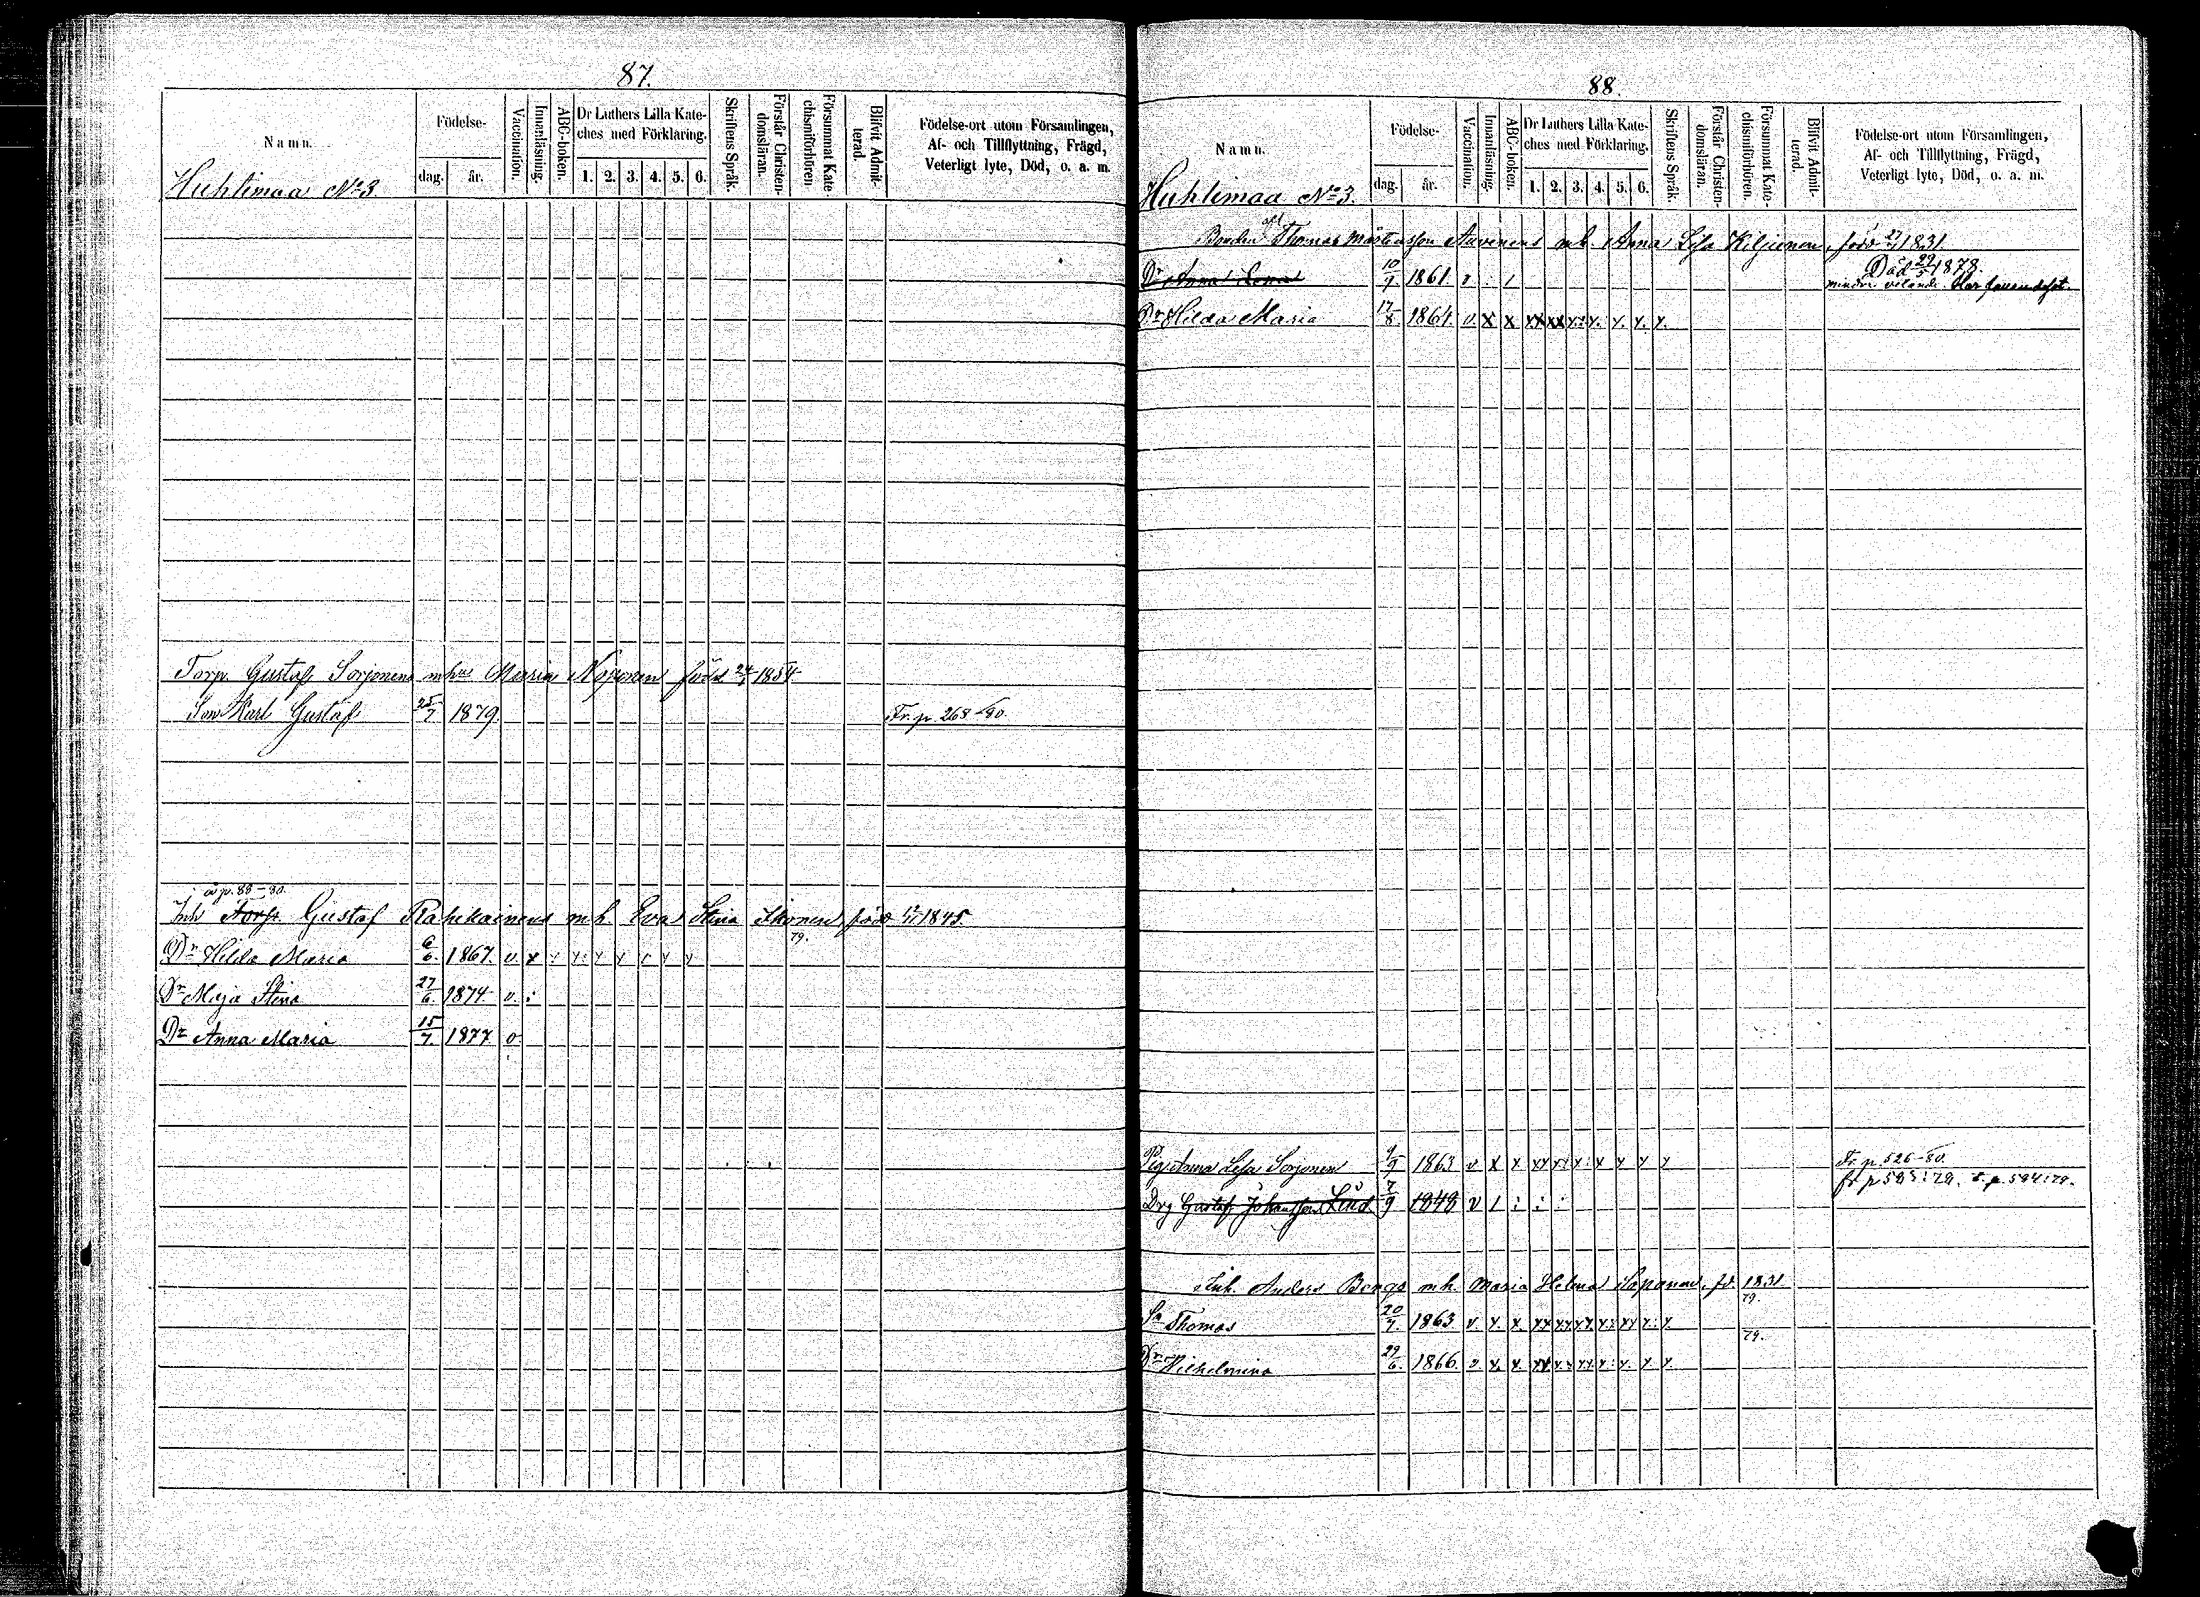 87.
Namn.
Födelse-
dag. år.
Vaccination.
Innanläsning.
ABC-boken.
Dr Luthers Lilla Kate-
ches med Förklaring.
1. 2. 3. 4. 5. 6.
Skriftens Språk.
Förstår Christen-
domsläran.
Försummat Kate-
chismiförhören
Blifvit Admit-
terad.
Födelse-ort utom Församlingen,
Af- och Tillflyttning, Frägd,
Veterligt lyte, Död, o. a. m.
Huhtimaa No 3
Torp. Gustaf Sorjonens mhu Maria Noponen född 24/1 1854
Son Karl Gustaf 25/7 1879. Fr. p. 268-80.
å p. 88-80.
Inh Torp. Gustaf Rahikainens m.h. Eva Stina Ikonen, född 12/11 1845.
79.
Dr Hilda Maria 6/6. 1867. v. x : x: x x x x x
Dr Maja Stina 27/6. 1874 v. :
Dr Anna Maria 15/7. 1877 v.
88.
Namn.
Födelse-
dag. år.
Vaccination.
Innanläsning.
ABC-boken.
Dr Luthers Lilla Kate-
ches med Förklaring.
1. 2. 3. 4. 5. 6.
Skriftens Språk.
Förstår Christen-
domsläran.
Försummat Kate-
chismiförhören.
Blifvit Admit-
terad.
Födelse-ort utom Församlingen,
Af- och Tillflyttning, Frägd,
Veterligt lyte, Död, o. a. m.
Huhtimaa No 3.
Bonden Thomas Mårtensson Auvinens m.h. Anna Lisa Kiljunen, född 27/1 1831.
Dr Anna Lena 10/9 1861. v. : / Död 29/5 1878.
mindre vetande.
Dr Hilda Maria 17/8. 1864. v. x x xx xx x: x. x. x. x.
Pig. Anna Lisa Sorjonen 9/9 1863 v x x xx x: x: x x x x Fr. p. 526-80.
fr p 593:79. t. p. 594:79.
Drg Gustaf Johansson Lind 7/9 1848 v / : : :
Inh. Anders Bergs m.h. Maria Helena Soponen, fd. 1831
79.
Sn Thomas 20/7. 1863 v. x. x. xx xx xx x: xx x: x.
79.
Dr Wilhelmina 29/6. 1866. v. x. x. xx x: xx x: x. x. x.